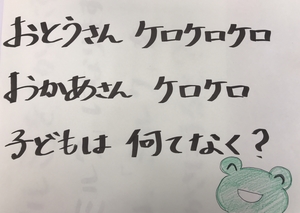 おとうさん ケロケロケロ
おかあさん ケロケロ
子どもは 何てなく?